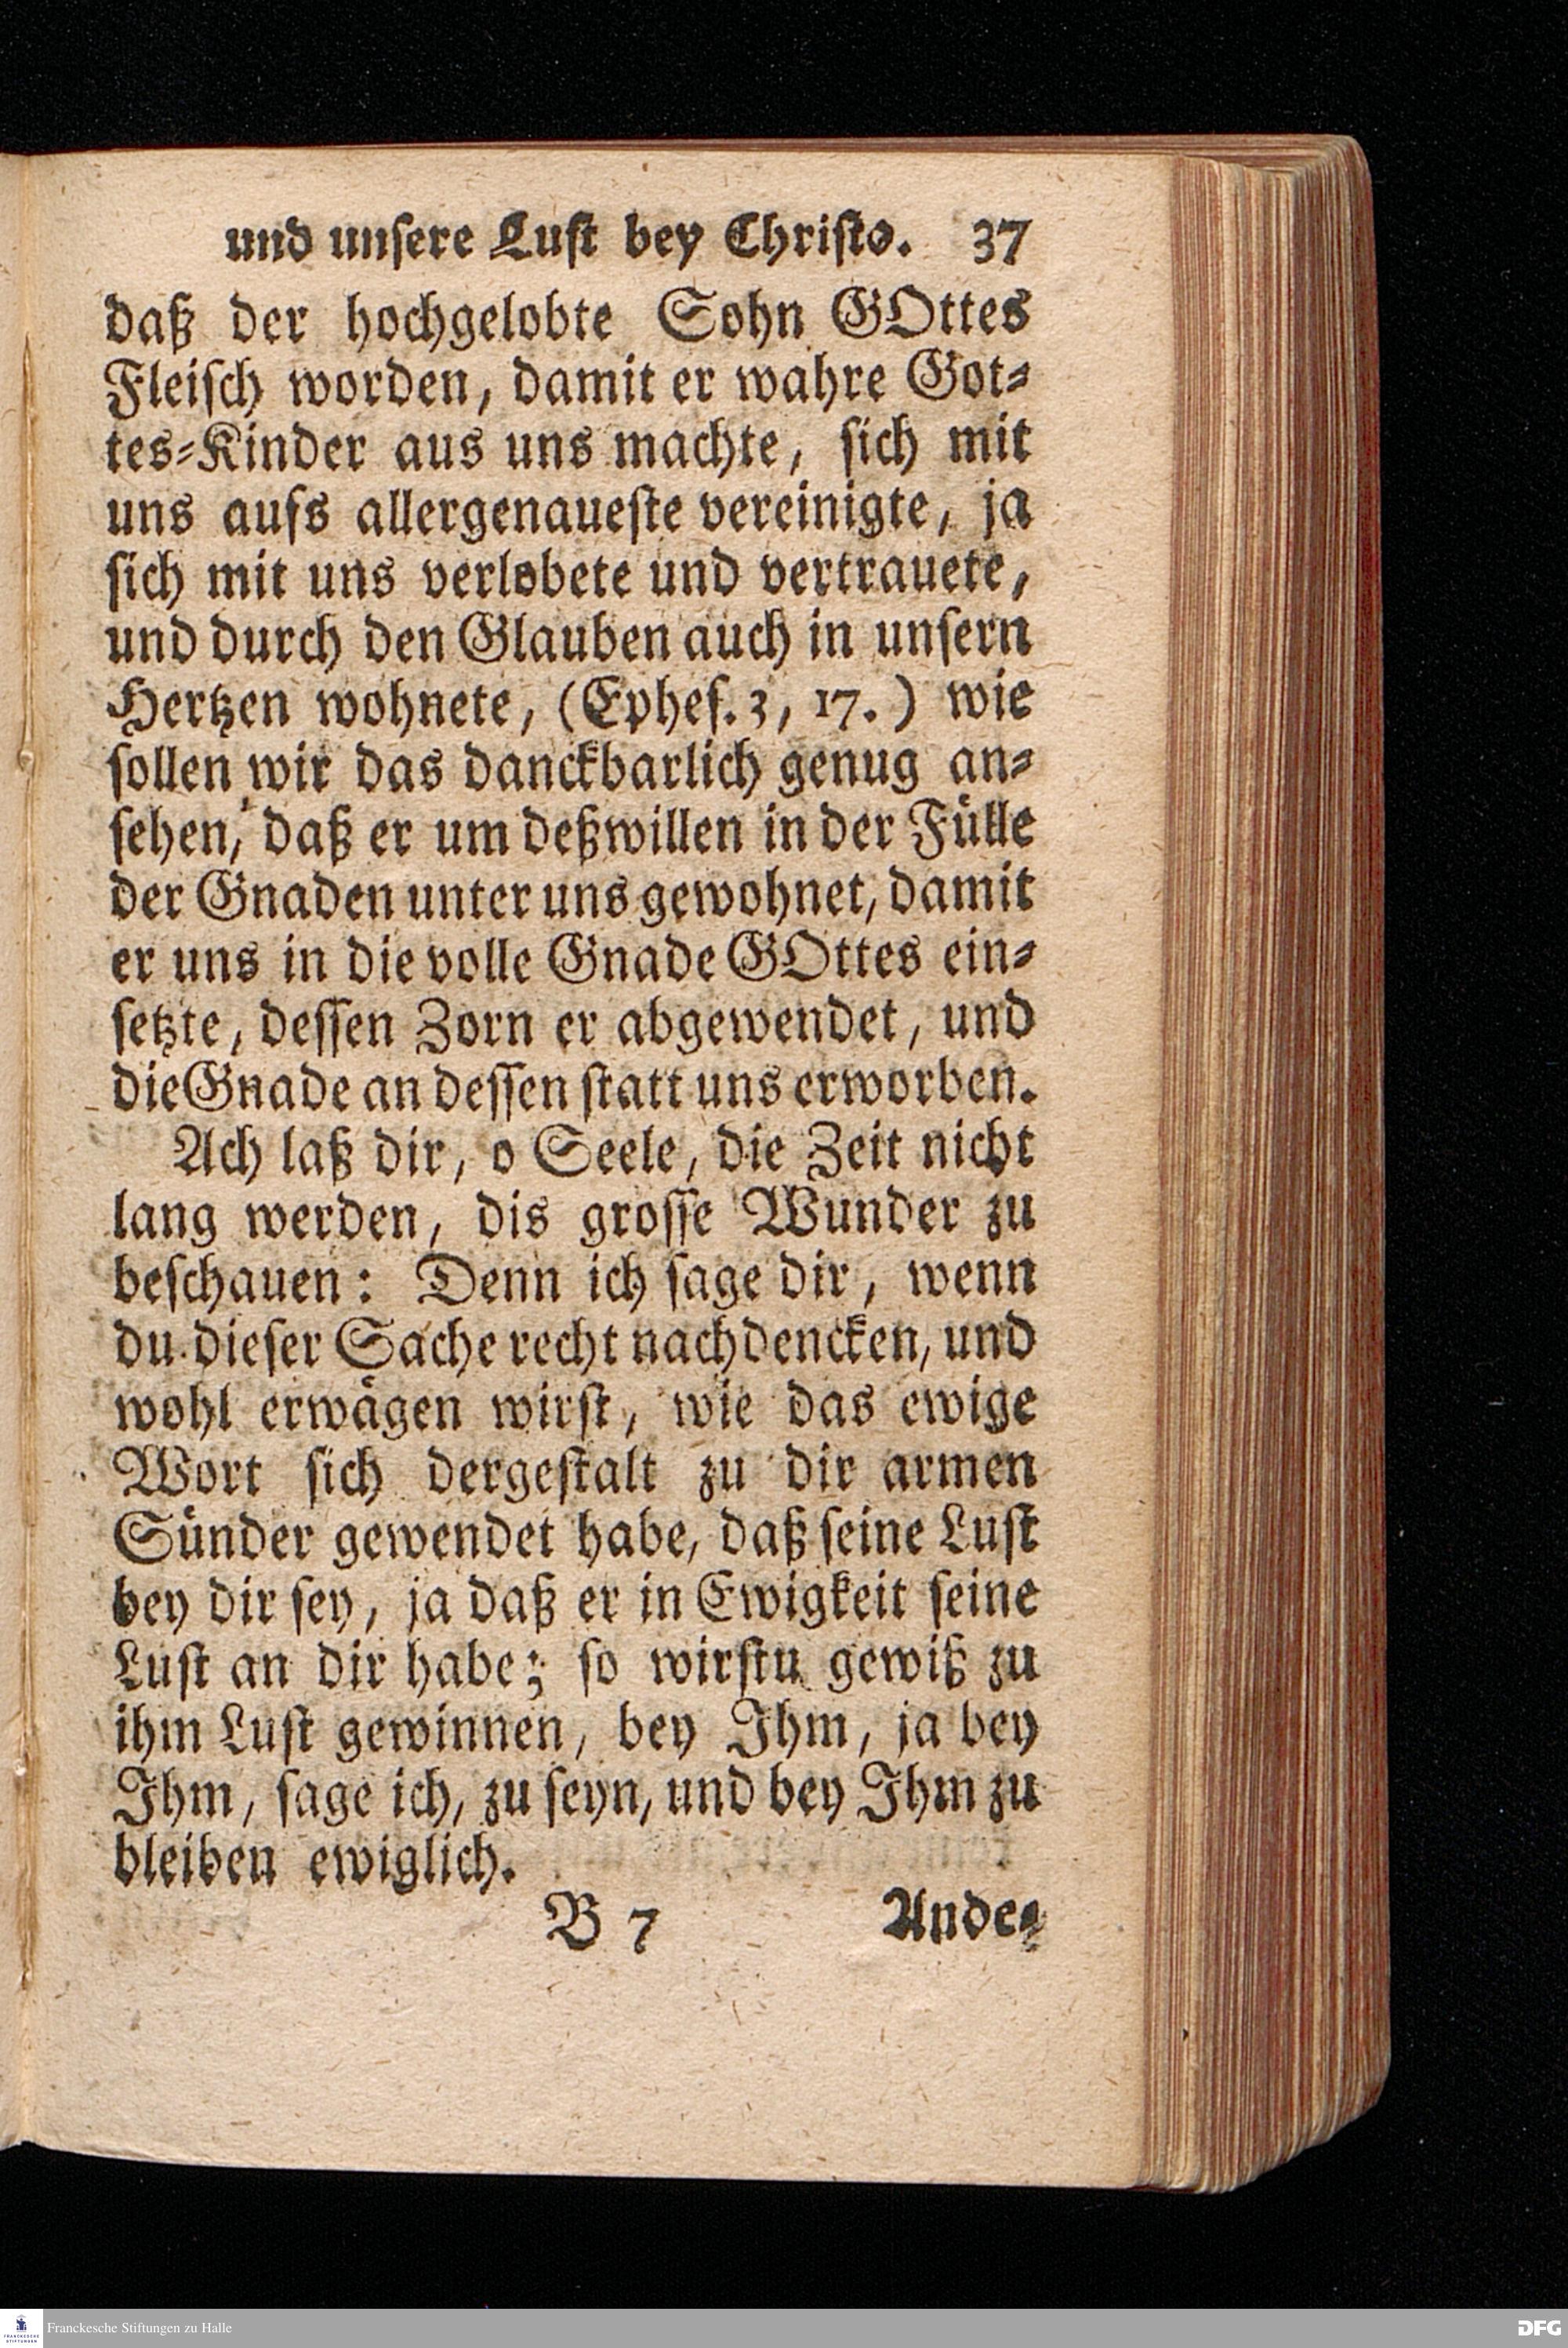 und unſere Luſt bey Chriſto. 37
daß der hochgelobte Sohn GOttes
Fleiſch worden, damit er wahre Got⸗
tes⸗Kinder aus uns machte, ſich mit
uns aufs allergenaueſte vereinigte, ja
ſich mit uns verlobete und vertrauete,
und durch den Glauben auch in unſern
Hertzen wohnete, (Epheſ. 3, 17.) wie
ſollen wir das danckbarlich genug an⸗
ſehen, daß er um deßwillen in der Fuͤlle
der Gnaden unter uns gewohnet, damit
er uns in die volle Gnade GOttes ein⸗
ſetzte, deſſen Zorn er abgewendet, und
die Gnade an deſſen ſtatt uns erworben.
Ach laß dir, o Seele, die Zeit nicht
lang werden, dis groſſe Wunder zu
beſchauen: Denn ich ſage dir, wenn
du dieſer Sache recht nachdencken, und
wohl erwaͤgen wirſt, wie das ewige
Wort ſich dergeſtalt zu dir armen
Suͤnder gewendet habe, daß ſeine Luſt
bey dir ſey, ja daß er in Ewigkeit ſeine
Luſt an dir habe; ſo wirſtu gewiß zu
ihm Luſt gewinnen, bey Ihm, ja bey
Ihm, ſage ich, zu ſeyn, und bey Ihm zu
bleiben ewiglich.
B 7 Ande⸗
FRANCKESCHE
STIFTUNGEN
Franckesche Stiftungen zu Halle
DFG